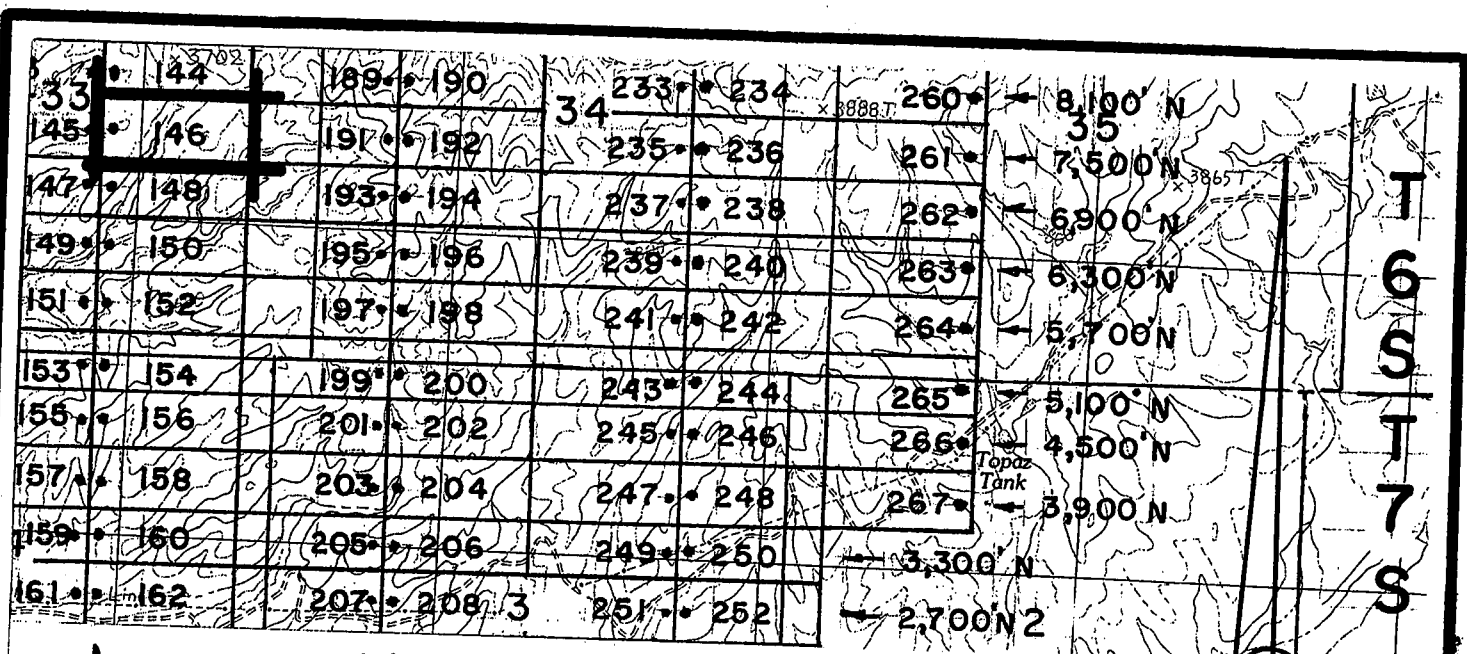 3702
33 144 189 190 34 233 234 3888T 260 8,100' N
35
145 146 191 192 235 236 261 7,500'N
3865T
147 148 193 194 237 238 262 6,900'N
149 150 195 196 239 240 263 6,300'N
151 152 197 198 241 242 264 5,700'N
T
6
S
153 154 199 200 243 244 265 5,100' N
155 156 201 202 245 246 266 4,500'N
Topaz
Tank
157 158 203 204 247 248 267 3,900'N
159 160 205 206 249 250 3,300' N
161 162 207 208 3 251 252 2,700'N 2
T
7
S